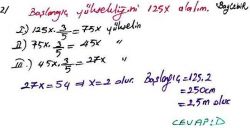 2) Başlangıç yüksekliğini 125x alalım. Böylelik
I) 125x.3/5 = 75x yükselir
II) 75x.3/5 = 45x "
III) 45x.3/5 = 27x "
27x = 54 ⇒ x = 2 olur. Başlangıç = 125.2
= 250cm
= 2,5m olur
CEVAP: D